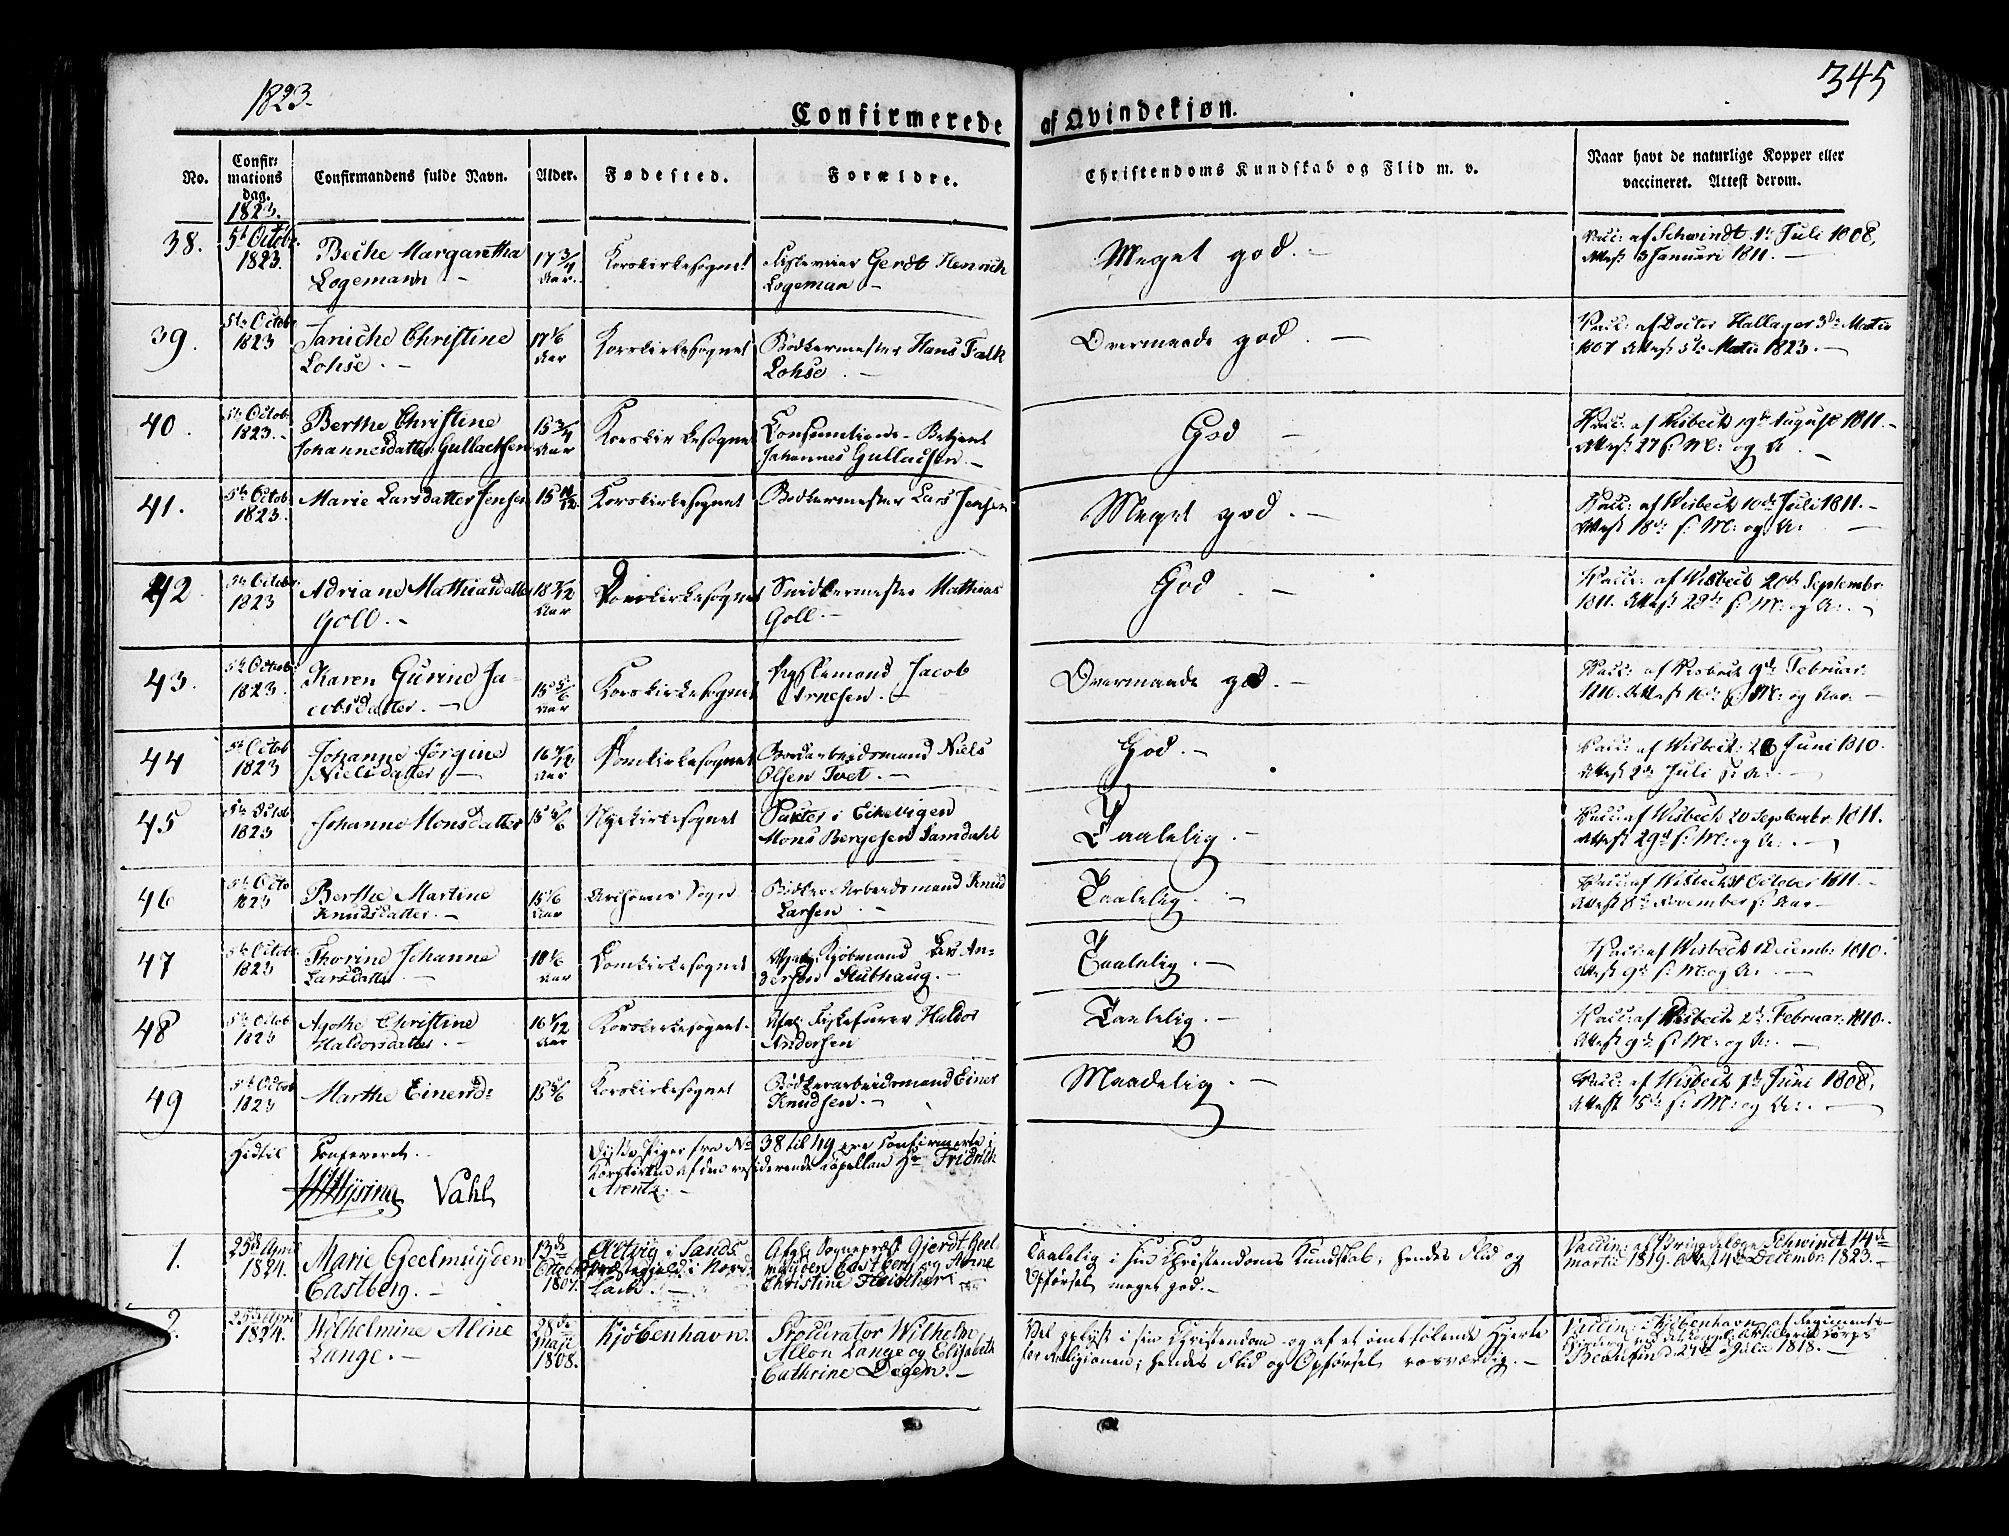 1823.
345
Confirmerede
af Qvindekjøn.
No.
Confir-
mations
dag.
Confirmandens fulde Navn.
Alder.
Fødested.
Forældre.
Christendoms Kundskab og Flid m. v.
Naar havt de naturlige Kopper eller
vaccineret. Attest derom.
1823.
38.
5t Octobr.
1823.
Beche Margaretha
Logemann
17 3/4
Aar.
Korskirkesognet
Gerdt Henrich
Logeman
Meget god.
Vacc: af Schwindt 1te Juli 1808,
Attest 3 Januari 1811.
39.
5te Octob
1823
Janiche Christine
Lohse.
17 1/6
Aar
Korskirkesognet
Bødkermester Hans Falk
Lohse.
Overmaade god.
Vacc: af Docter Hallager 3de Matii
1807 Attest 5te Matii 1823.
40.
5te Octob
1823.
Berthe Christine
Johannesdatter Gullachsen
15 3/4
Aar
Korskirkesognet
Consumtions-Betjent
Johannes Gullachsen
God
Vacc: af Wisbech 19de August 1811.
Attest 27 s: M: og A.
41.
5te Octob
1823.
Marie Larsdatter Jensen
Korskirkesognet
Bødkermester Lars Jensen
Meget god.
Vacc: af Wisbech 10de Juli 1811.
Attest 18de s: M: og A:
42.
5te Octob
1823
Adriane Mathiasdatter
Goll.
18 7/12
Aar
Domkirkesognet
Snidkermester Mathias
Goll.
God.
Vacc: af Wisbech 20de Septembr.
1811. Attest 28de s: M: og A:.
43.
5te Octob
1823.
Karen Gurine Ja-
cobsdatter.
15 5/6
Aar
Korskirkesognet
Jacob
Arnesen.
Overmaade god.
Vacc: af Wisbech 9de Februar.
1810. Attest 10de s: M: og Aar.
44
5te Octob
1823
Johanne Jørgine
Nielsdatter
16 7/12
Aar
Domkirkesognet
Niels
Olsen Tvet.
God.
Vacc: af Wisbech: 26 Juni 1810.
Attest 2de Juli s: A:.
45
5te Octob
1823
Johanne Monsdatter
15 5/6
Nykirkesognet
i Eikevigen
Mons Bergesen Samdahl
Taalelig.
Vacc: af Wisbech 20 Septembr: 1811.
Attest 29de s: M: og A:.
46
5te Octo
1823
Berthe Martine
Knudsdatter.
15 1/6
Aar
Askøens Sogn
Bødker Arbeidsmand Knud
Larsen.
Taalelig.
Vacc: af Wisbech October 1811.
Attest 8de November s: Aar.
47
5te Octob
1823
Thorine Johanne
Larsdatter
18 1/6
Aar
Domkirkesognet
Afgl. Kjøbmand Lars An-
dersen Stubhaug.
Taalelig.
Vacc: af Wisbech 1 Decembr: 1810.
Attest 9de s: M: og A:.
48
5te Octob
1823
Agothe Christine
Haldorsdatter.
16 1/12
Aar
Korskirkesognet.
Afgl. Haldor
Andersen
Taalelig.
Vacc: af Wisbech 2de Februar: 1810.
Attest 9de s: M: og A:.
49
5te Octob
1823
Marthe Einersd:
15 5/6
Korskirkesognet
Bødkerarbeidsmand Einer
Knudsen.
Maadelig.
Vacc: af Wisbech 1te Juni 1808,
Attest 15de s: M: og A:.
Hidtil
Confereret.
Vahl
Disse Piger fra No 38 til 49 ere confirmerte i
Korskirken af den residerende Capellan Hr Fridrich
Arentz.
1.
25de April
1824.
Marie Geelmuyden
Castberg.
13de
October
1807.
i Sands
Præstegjeld i Nord-
Land.
Afgl. Sognepræst Gjerdt Geel-
muyden Castberg og Anne
Christine Fleischer
Taalelig i sin Christendoms Kundskab; hendes Flid og
Opførsel meget god.
Vaccin: af Brigadelæge Schwindt 14de
Martii 1819. Att. 4de Decembr. 1823.
2.
25de April
1824.
Wilhelmine Aline
Lange.
28de
Maji
1808.
Kjøbenhavn.
Procurator Wilhelm
Allon Lange og Elisabeth
Cathrine Degen.
Vel oplyst i sin Christendom og af et ømt følende Hjerte
for Religionen; hendes Flid og Opførsel roesværdig.
Vaccin: i Kjøbenhavn af Regiments-
24de Julii 1818.